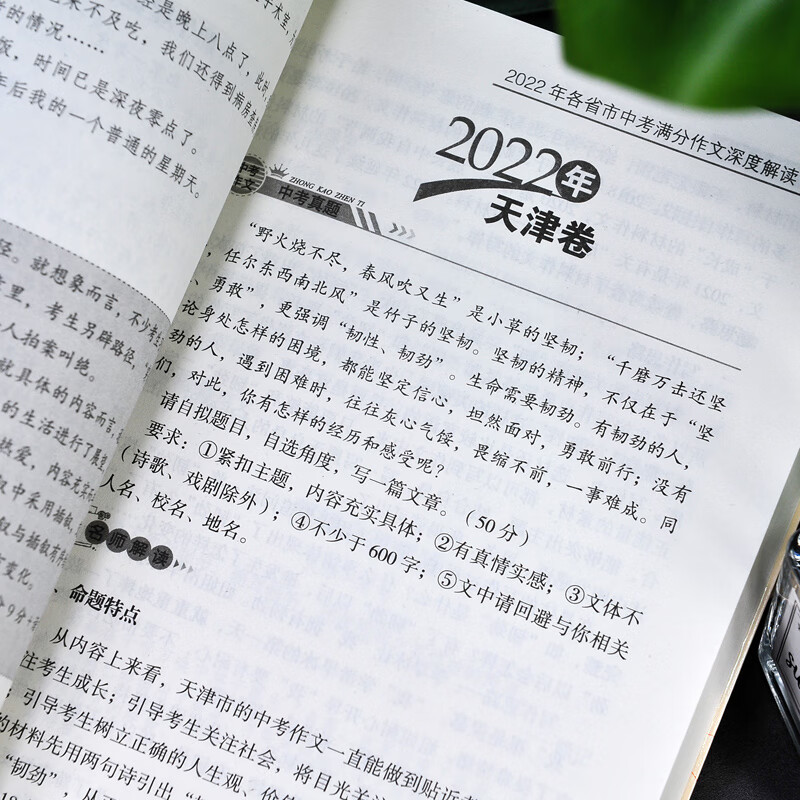 是晚上八点了，此时
来不及吃，我们还得到病房查
的情况……
版，时间已是深夜零点了。
年后我的一个普通的星期天。
径。就想象而言，不少考
章里，考生另辟路径，
人拍案叫绝。
就具体的内容而言
的生活进行了展
热爱，内容充实
又中采用插叙
叙与插叙有
变化。
2022年各省市中考满分作文深度解读
2022年
天津卷
ZHONG KAO ZHEN TI
中考真题
“野火烧不尽，春风吹又生”是小草的坚韧；“千磨万击还坚
，任尔东西南北风”是竹子的坚韧。坚韧的精神，不仅在于“坚
、勇敢”，更强调“韧性、韧劲”。生命需要韧劲。有韧劲的人，
论身处怎样的困境，都能坚定信心，坦然面对，勇敢前行；没有
劲的人，遇到困难时，往往灰心气馁，畏缩不前，一事难成。同
们，对此，你有怎样的经历和感受呢？
请自拟题目，自选角度，写一篇文章。（50分）
要求：①紧扣主题，内容充实具体；②有真情实感；③文体不
（诗歌、戏剧除外）；④不少于600字；⑤文中请回避与你相关
人名、校名、地名。
名师解读
、命题特点
从内容上来看，天津市的中考作文一直能做到贴近
注考生成长；引导考生关注社会，将目光关
；引导考生树立正确的人生观、价
的材料先用两句诗引出“
“韧劲”，从